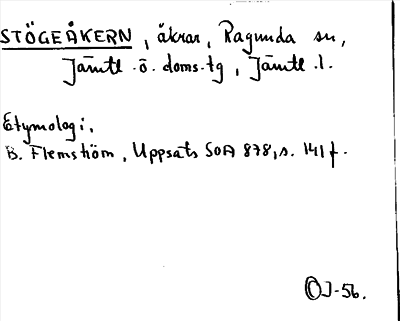 STÖGEÅKERN, åkrar, Ragunda sn,
Jämtl. ö. doms.tg, Jämtl. l.
Etymologi,
B. Flemström, Uppsats SOA 878, s. 141 f.
OJ-56.